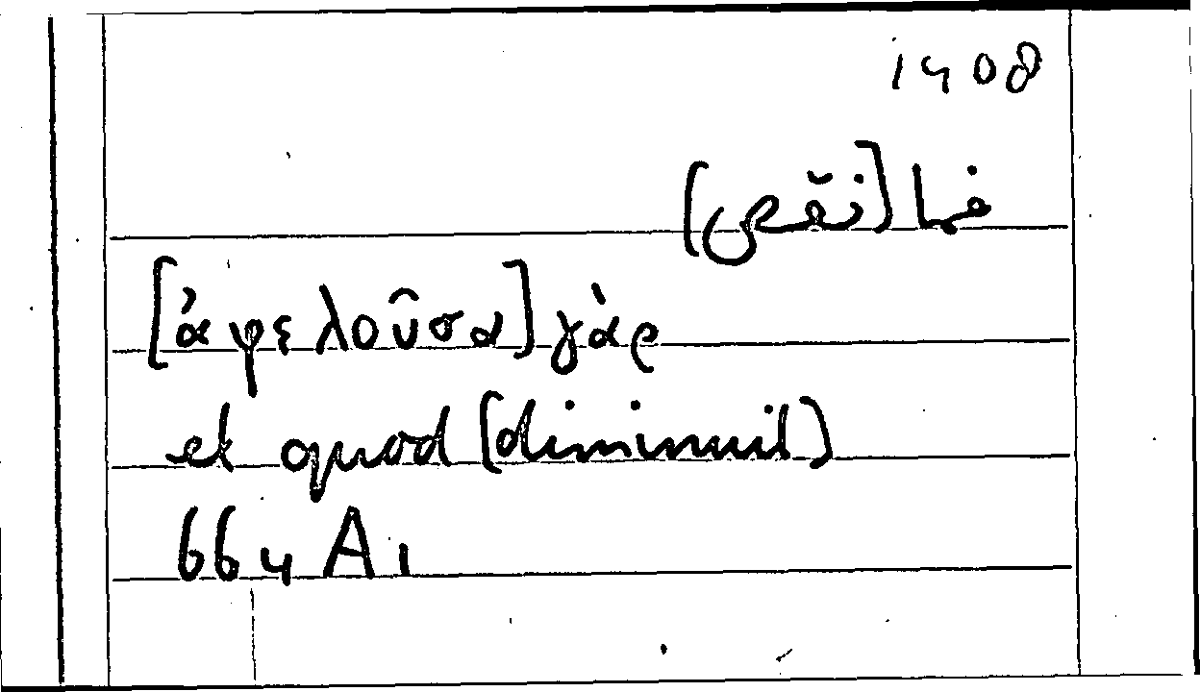 1408
فما [نقص]
[ἀφελοῦσα] γὰρ
et quod [diminuit]
664 A 1